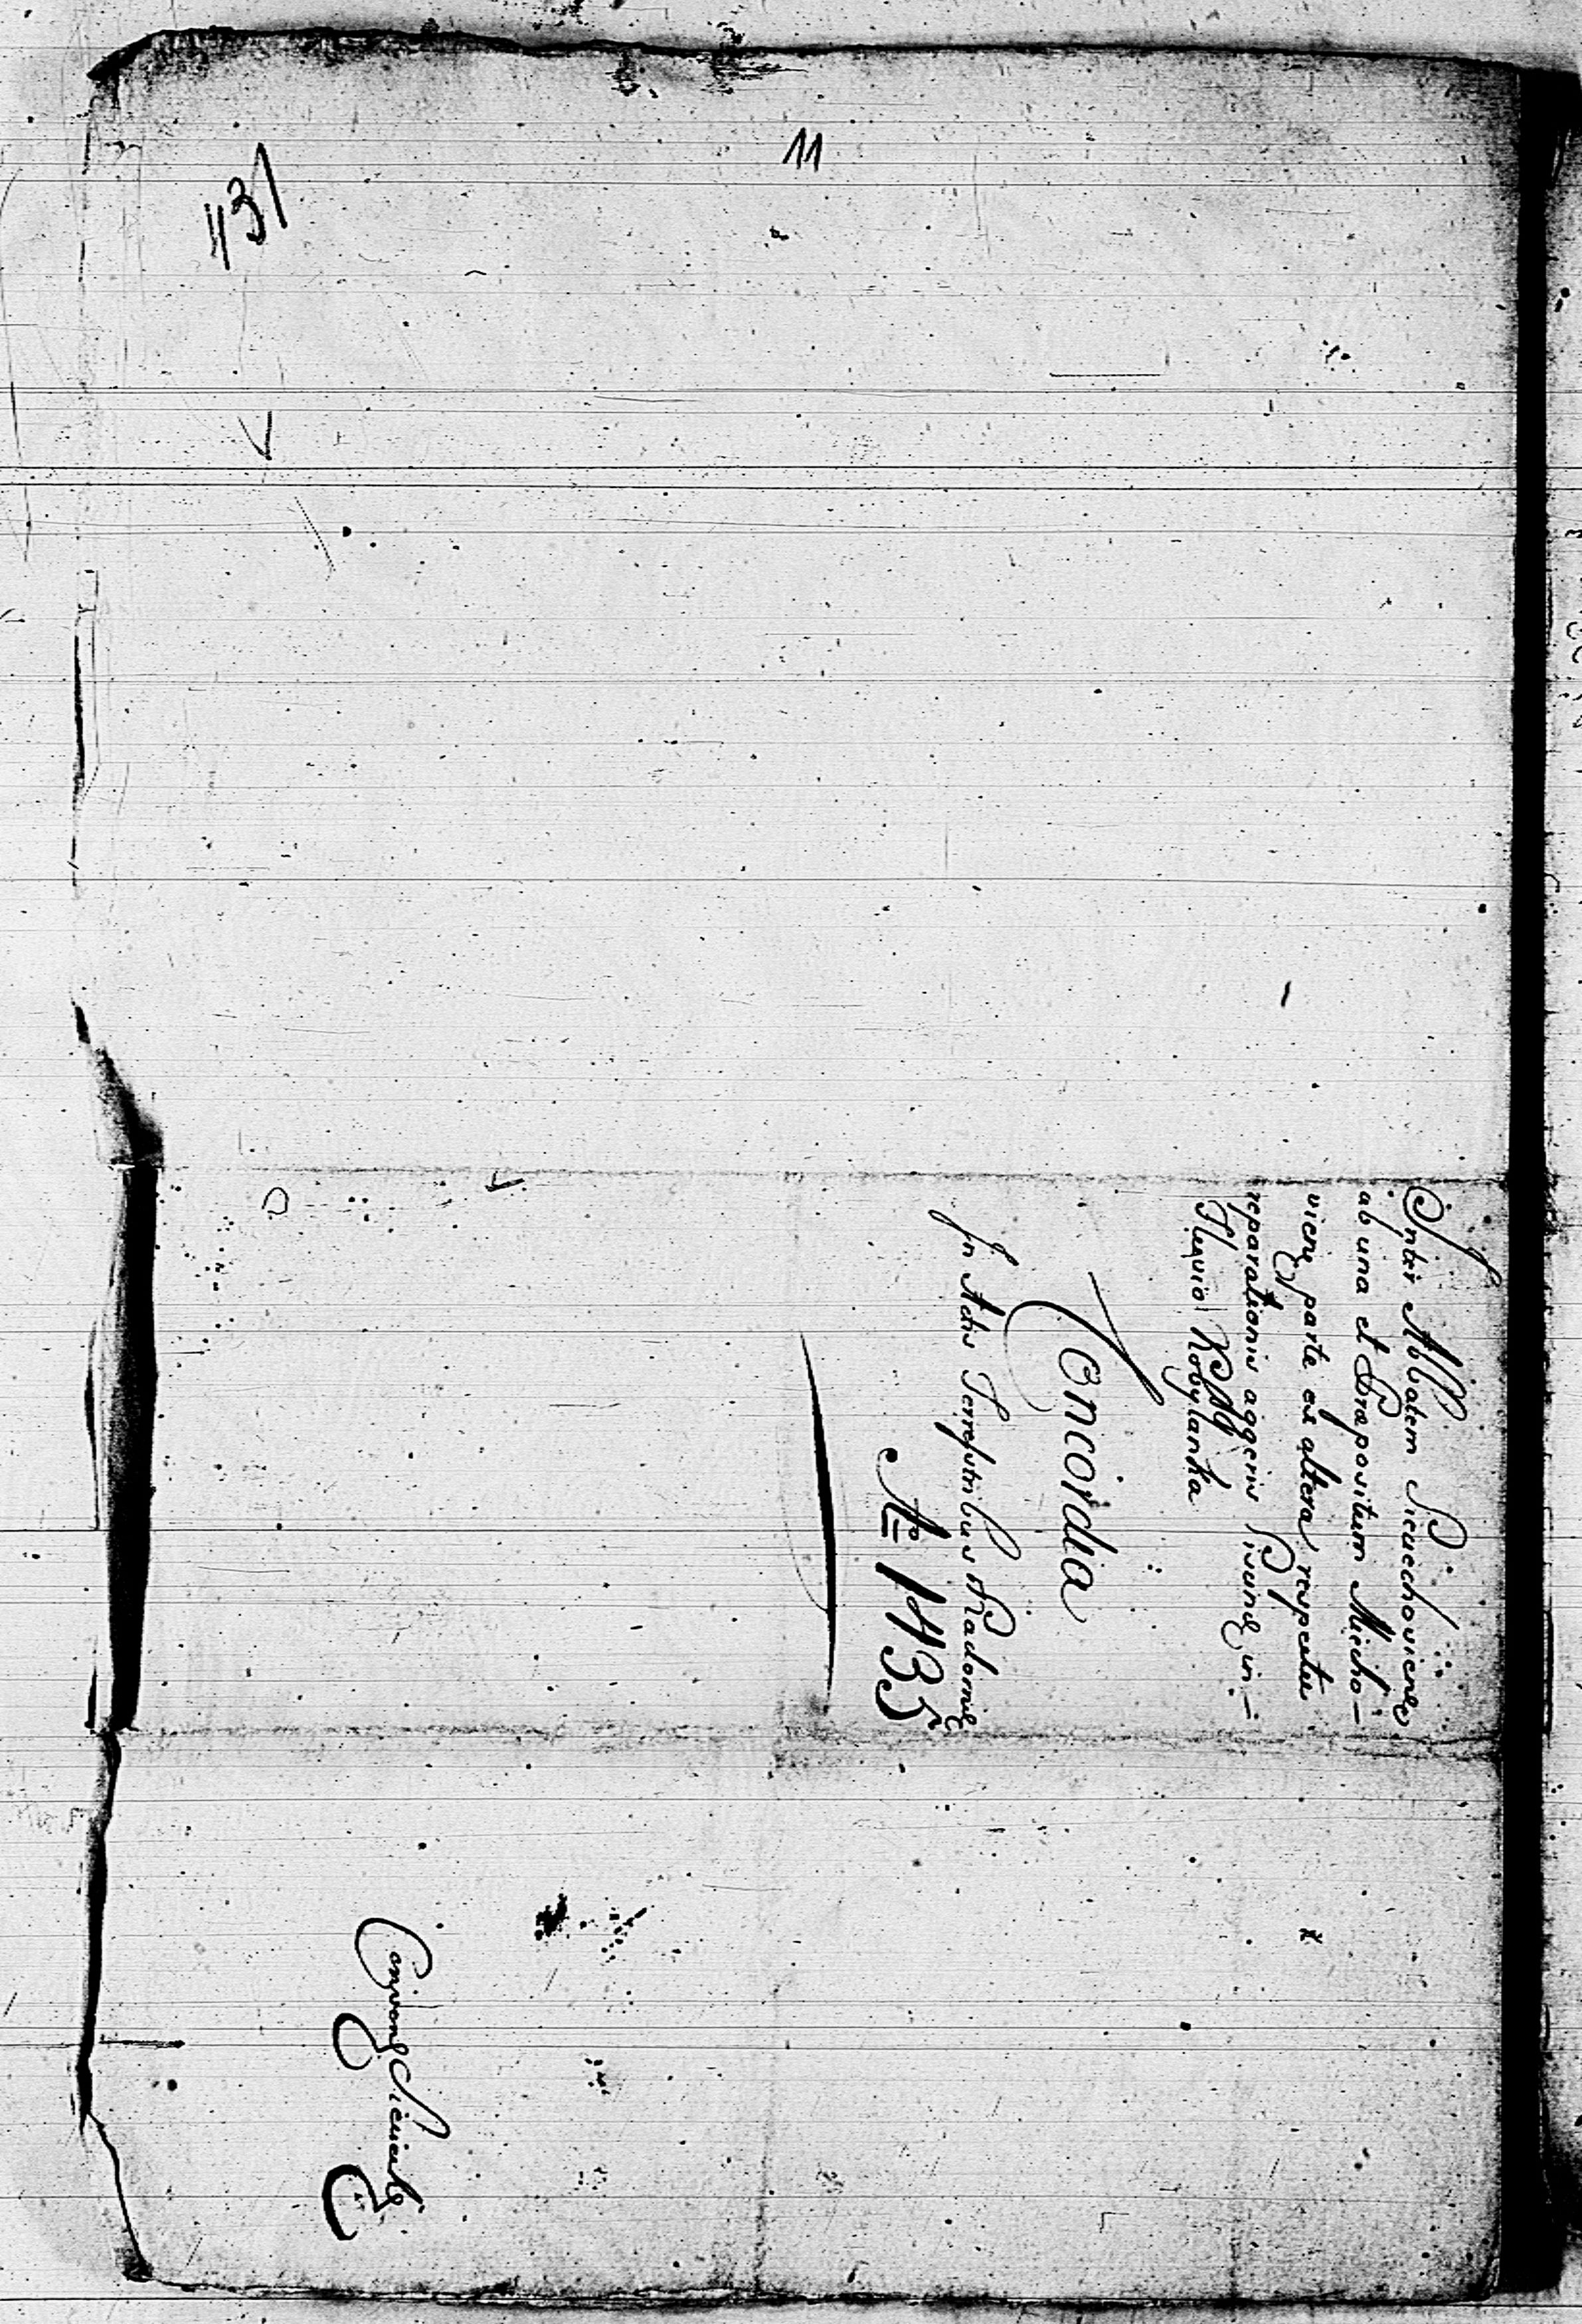 11
431
Inter Abbatem Siciechoviens
ab una et Præpositum Miecho-
viens parte ex altera respectu
reparationis aggeris Pisune in-
Fluvio Kobylanka
Concordia
In Actis Terrestribus Radomie
No 1435